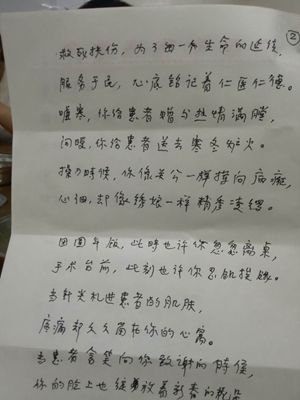 ②
救死扶伤，为了每一个生命的延续，
服务于民，心底铭记着仁医仁德。
嘘寒，你给患者增分热情满腔，
问暖，你给患者送去寒冬炉火。
操刀时候，你像关公一样挥向病痴，
心细，却像绣娘一样精彦凌锶。
团圆年饭，此时也许你忽忽离桌，
手术台前，此刻也许你忍饥挨饿。
当针尖扎进患者的肌肤，
疼痛却久久留在你的心窝。
当患者含笑向你致谢的时候，
你的脸上也绽放着新春的花朵